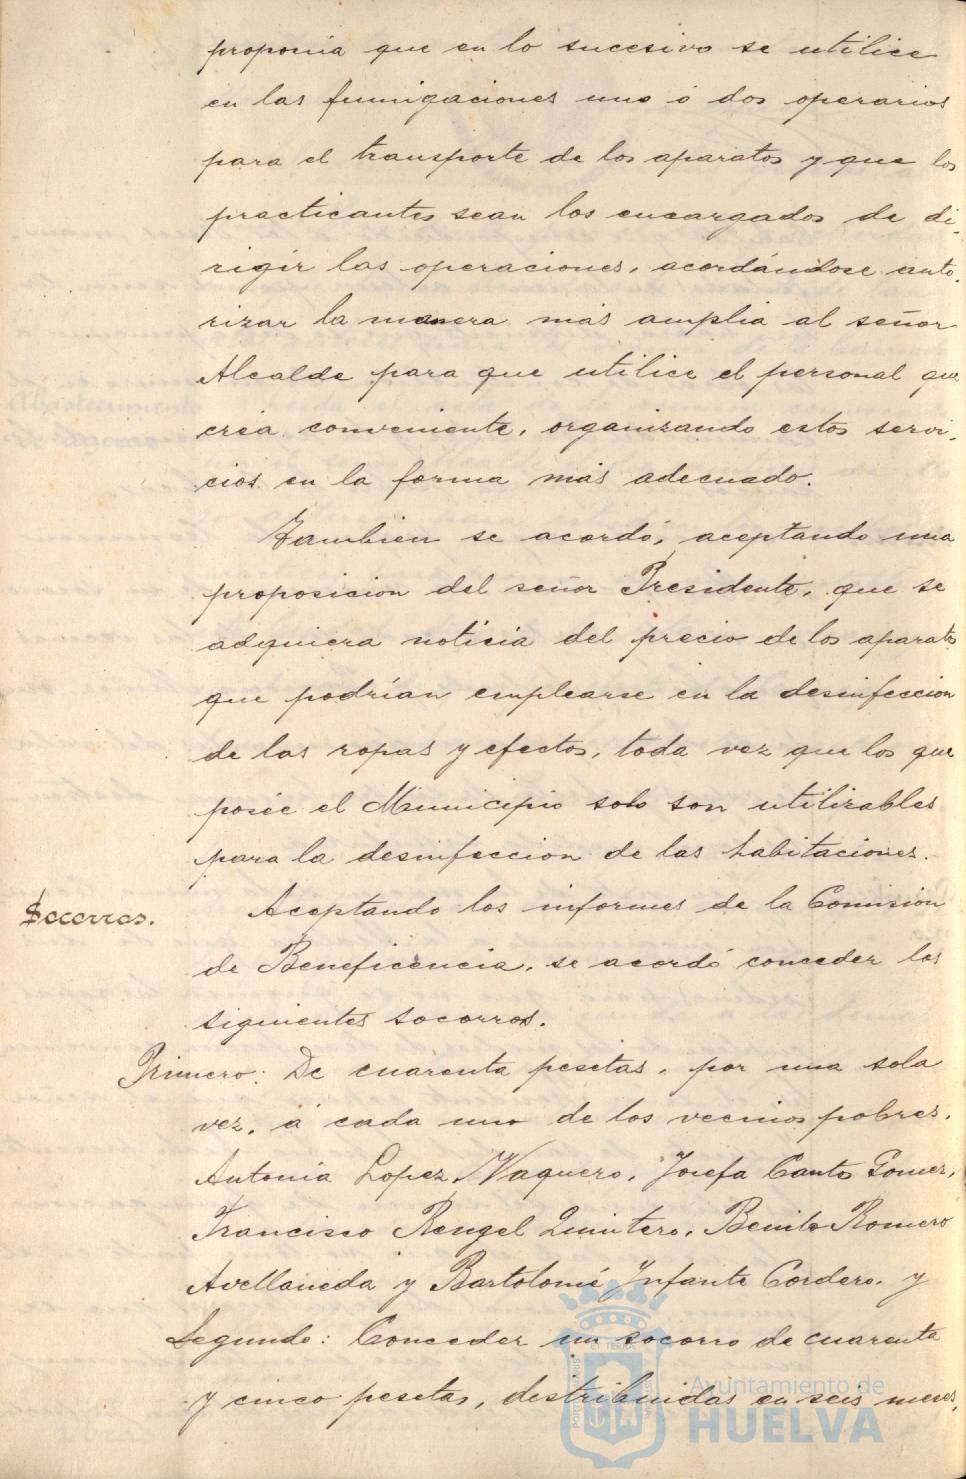 proponia que en lo sucesivo se utilice
en las fumigaciones uno ó dos operarios
para el transporte de los aparatos y que los
practicantes sean los encargados de di-
rigir las operaciones, acordándose auto-
rizar la manera más amplia al señor
Alcalde para que utilice el personal que
créa conveniente, organizando estos servi-
cios en la forma más adecuado.
Tambien se acordó, aceptando una
proposicion del señor Presidente, que se
adquiera noticia del precio de los aparatos
que podrían emplearse en la desinfeccion
de las ropas y efectos, toda vez que los que
posée el Municipio solo son utilizables
para la desinfeccion de las habitaciones.
Socorros.
Aceptando los informes de la Comision
de Beneficencia, se acordó conceder los
siguientes socorros.
Primero: De cuarenta pesetas, por una sola
vez, á cada uno de los vecinos pobres,
Antonia Lopez Vaquero, Josefa Canto Gomez,
Francisco Rengel Quintero, Benito Romero
Avellaneda y Bartolomé Infante Cordero, y
Segundo: Conceder un socorro de cuarenta
y cinco pesetas, destribuidas en seis meses,
Ayuntamiento de
HUELVA